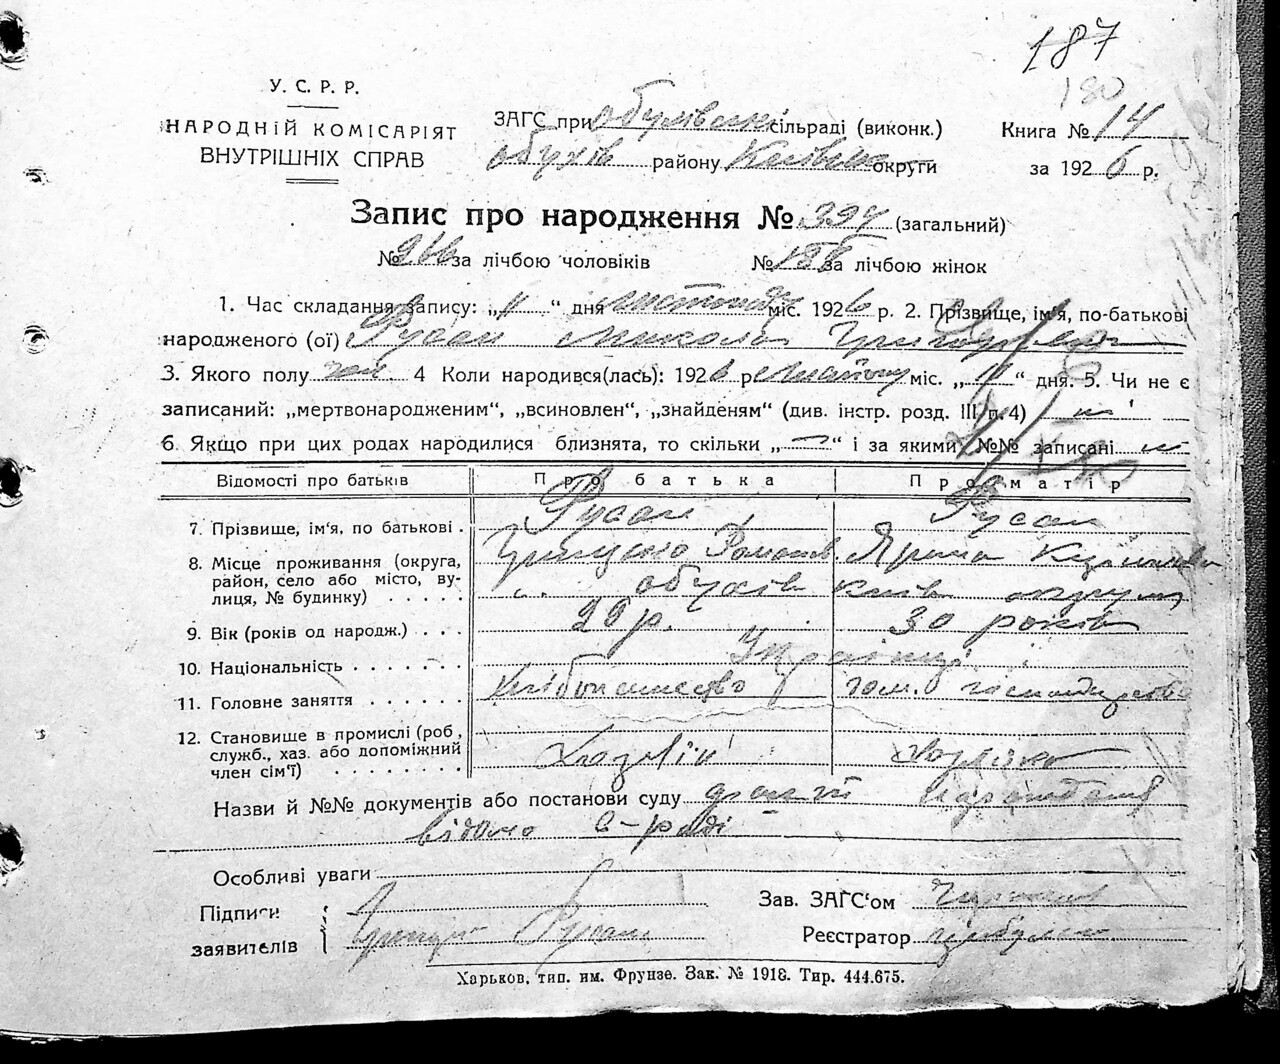 187
180
У. С. Р. Р.
НАРОДНІЙ КОМІСАРІЯТ
ВНУТРІШНІХ СПРАВ
ЗАГС при сільраді (виконк.)
Обухів району Київськ округи
Книга № 14
за 1926 р.
Запис про народження № 394 (загальний)
№ за лічбою чоловіків № за лічбою жінок
1. Час складання запису: „11“ дня листопада міс. 1926 р. 2. Прізвище, ім'я, по-батькові
народженого (ої) Русан Микола Григорович
3. Якого полу чол. 4 Коли народився(лась): 1926 р. міс. „11“ дня. 5. Чи не є
записаний: „мертвонародженим“, „всиновлен“, „знайденям“ (див. інстр. розд. III п. 4) ні
6 Якщо при цих родах народилися близнята, то скільки „—“ і за якими №№ записані
Відомості про батьків Про батька Про матір
7. Прізвище, ім'я, по батькові . Русан Русан
8. Місце проживання (округа, район, село або місто, вулиця, № будинку) . . . . . Романов. Ярина
Обухів Київ округи
9. Вік (років од народж.) . . . 29 р. 30 років
10. Національність . . . . . . . Українці
11. Головне заняття . . . . . . Хліборобство дом. господарство
12. Становище в промислі (роб., служб., хаз. або допоміжний член сім'ї) . . . . . . . . Хазяїн Хазяйка
Назви й №№ документів або постанови суду
відомо с-раді
Особливі уваги
Підписи
заявителів
Русан
Зав. ЗАГС'ом
Реєстратор
Харьков, тип. им. Фрунзе. Зак. № 1918. Тир. 444.675.